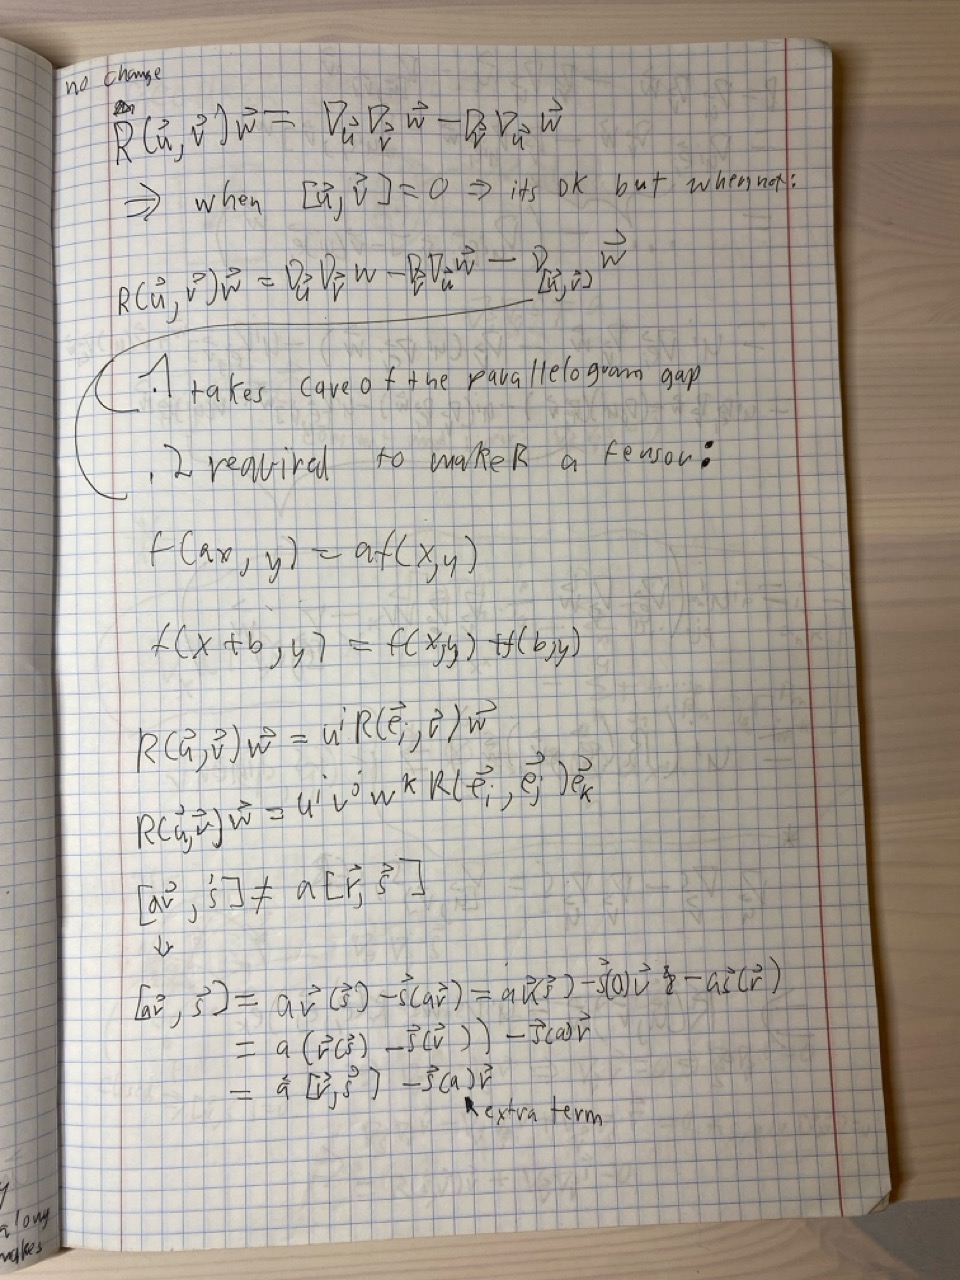 no change
R(u⃗, v⃗)w⃗ = ∇_u⃗ ∇_v⃗ w⃗ − ∇_v⃗ ∇_u⃗ w⃗
⇒ when [u⃗, v⃗] = 0 ⇒ its ok but when not:
R(u⃗, v⃗)w⃗ = ∇_u⃗ ∇_v⃗ w − ∇_v⃗ ∇_u⃗ w⃗ − ∇_[u⃗,v⃗] w⃗
.1 takes care of the parallelogram gap
.2 required to make R a tensor:
f(ax, y) = af(x,y)
f(x + b, y) = f(x,y) + f(b,y)
R(u⃗,v⃗)w⃗ = uⁱ R(e⃗ᵢ, v⃗)w⃗
R(u⃗,v⃗)w⃗ = uⁱ vʲ wᵏ R(e⃗ᵢ, e⃗ⱼ)e⃗ₖ
[av⃗, s⃗] ≠ a[v⃗, s⃗]
↓
[av⃗, s⃗] = av⃗(s⃗) − s⃗(av⃗) = av⃗(s⃗) − s⃗(a)v⃗ − as⃗(v⃗)
= a(v⃗(s⃗) − s⃗(v⃗)) − s⃗(a)v⃗
= a[v⃗, s⃗] − s⃗(a)v⃗
extra term
y
along
makes